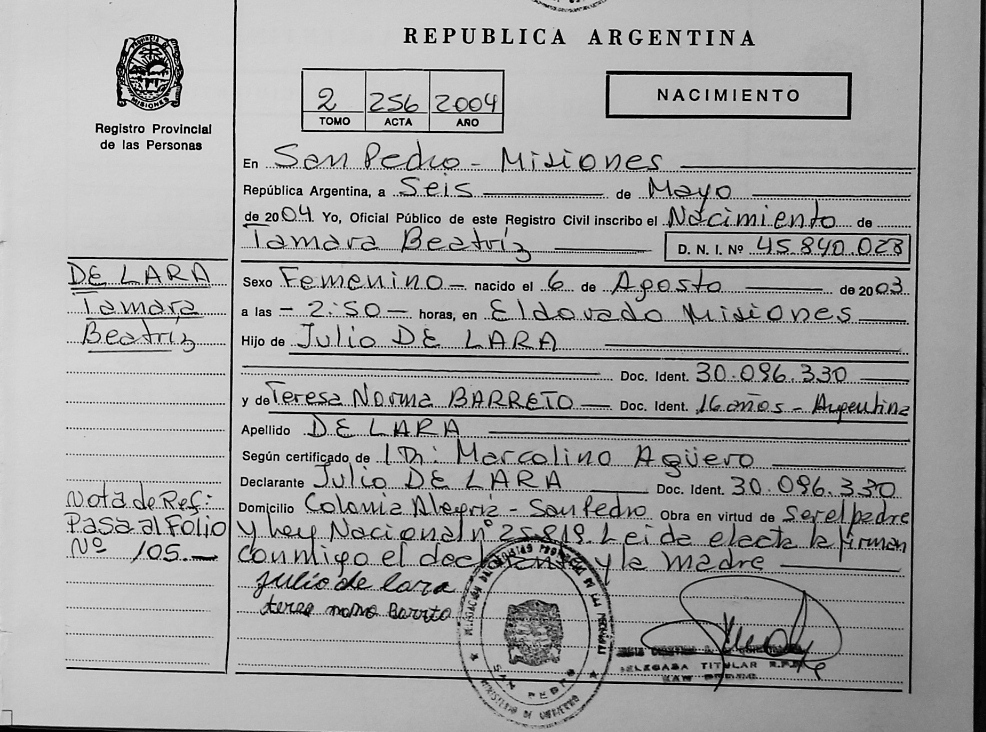 REPUBLICA ARGENTINA
PROVINCIA DE MISIONES
Registro Provincial
de las Personas
2 256 2004
TOMO ACTA AÑO
NACIMIENTO
En San Pedro - Misiones
República Argentina, a Seis de Mayo
de 2004. Yo, Oficial Público de este Registro Civil inscribo el Nacimiento de
Tamara Beatríz D. N. I. Nº 45.840.023
DE LARA
Tamara
Beatríz
Sexo Femenino - nacido el 6 de Agosto de 2003
a las - 2:50 - horas, en Eldorado Misiones
Hijo de Julio DE LARA
Doc. Ident. 30.096.330
y de Teresa Norma BARRETO Doc. Ident. 16 años - Argentina
Apellido DE LARA
Según certificado de Marcolino Agüero
Declarante Julio DE LARA Doc. Ident. 30.096.330
Domicilio Colonia Alegría - San Pedro Obra en virtud de Ser el padre
y Ley Nacional nº 25.819. Leida el acta la firman
conmigo el y la madre
Nota de Ref:
Pasa al Folio
Nº 105.-
julio de lara
Barrito
SAN PEDRO
MINISTERIO DE GOBIERNO
DELEGADA TITULAR R.P.P.
SAN PEDRO